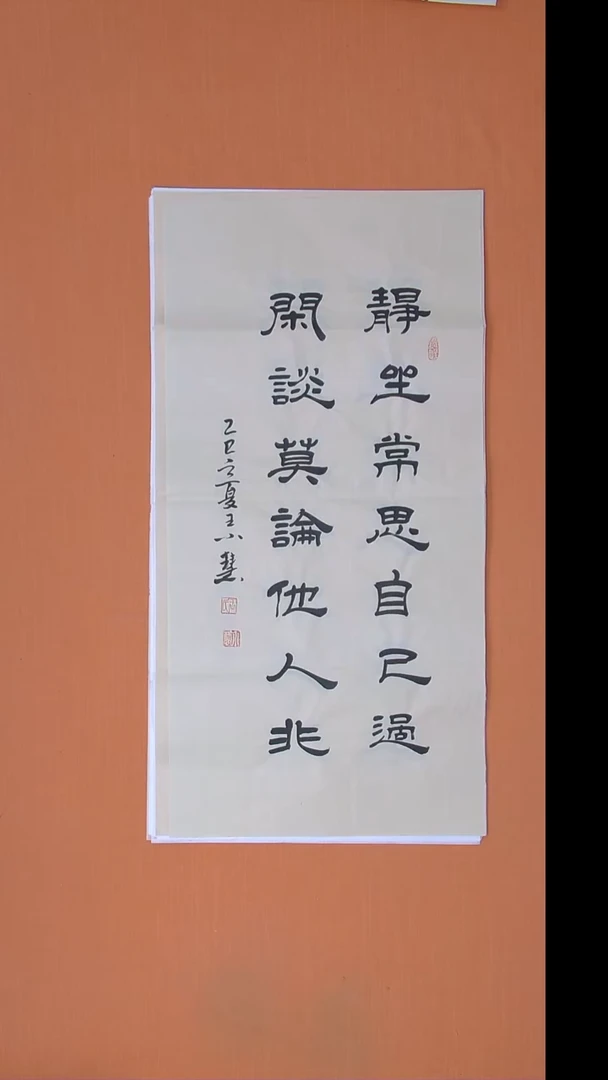 靜坐常思自己過
閑談莫論他人非
乙巳立夏王小慧